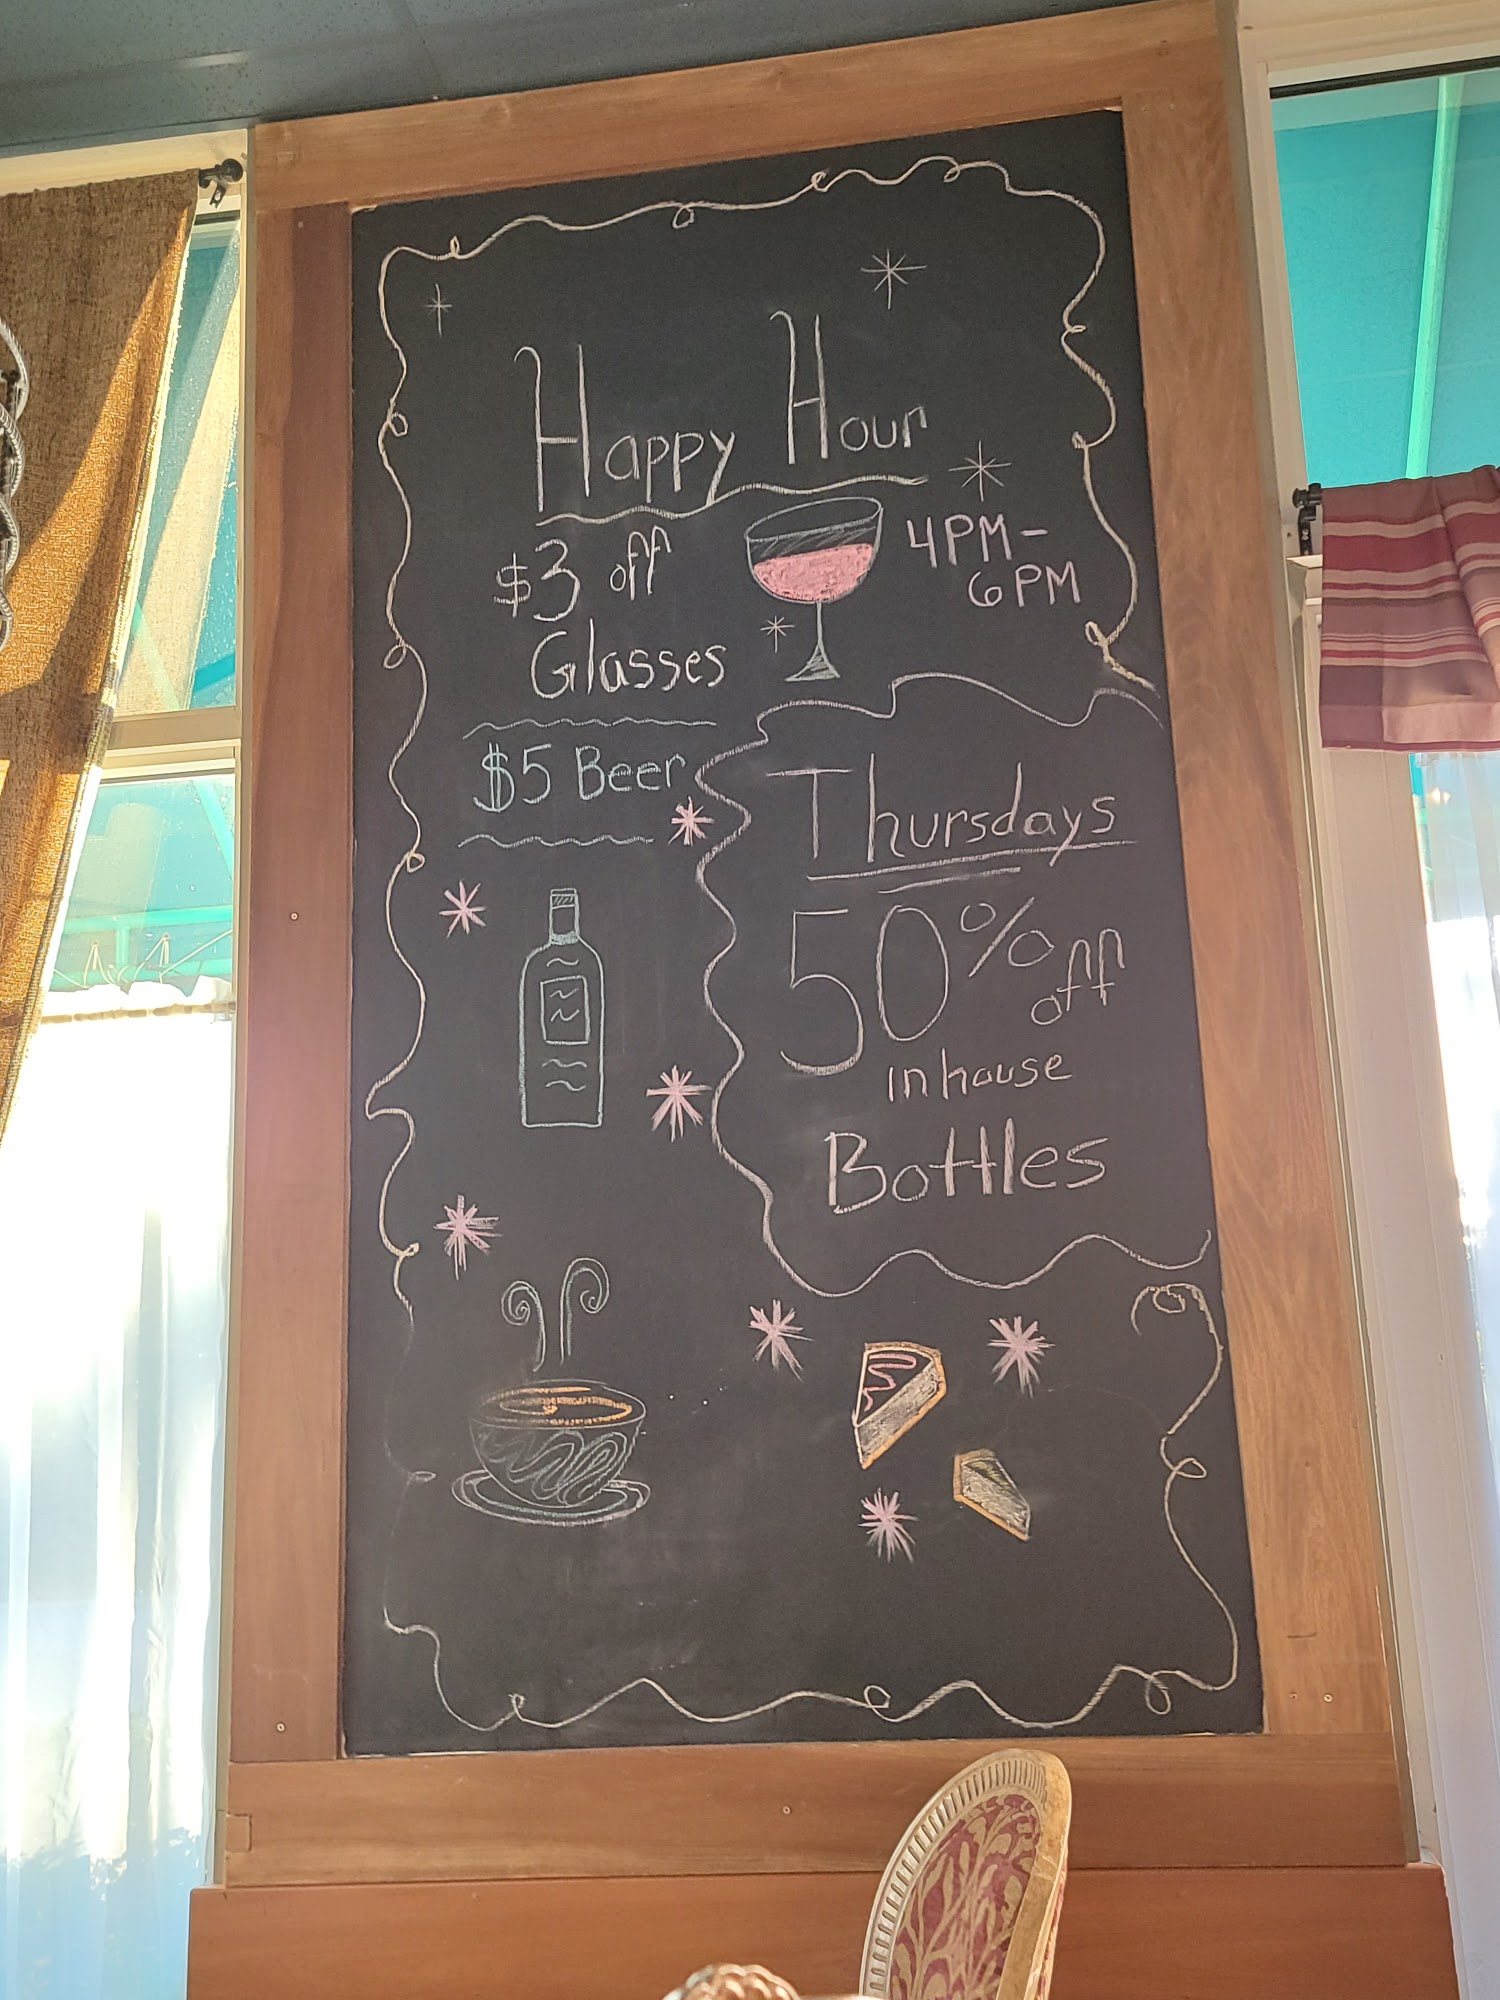 Happy Hour
$3 off
Glasses
4PM-
6PM
$5 Beer
Thursdays
50% off
in house
Bottles